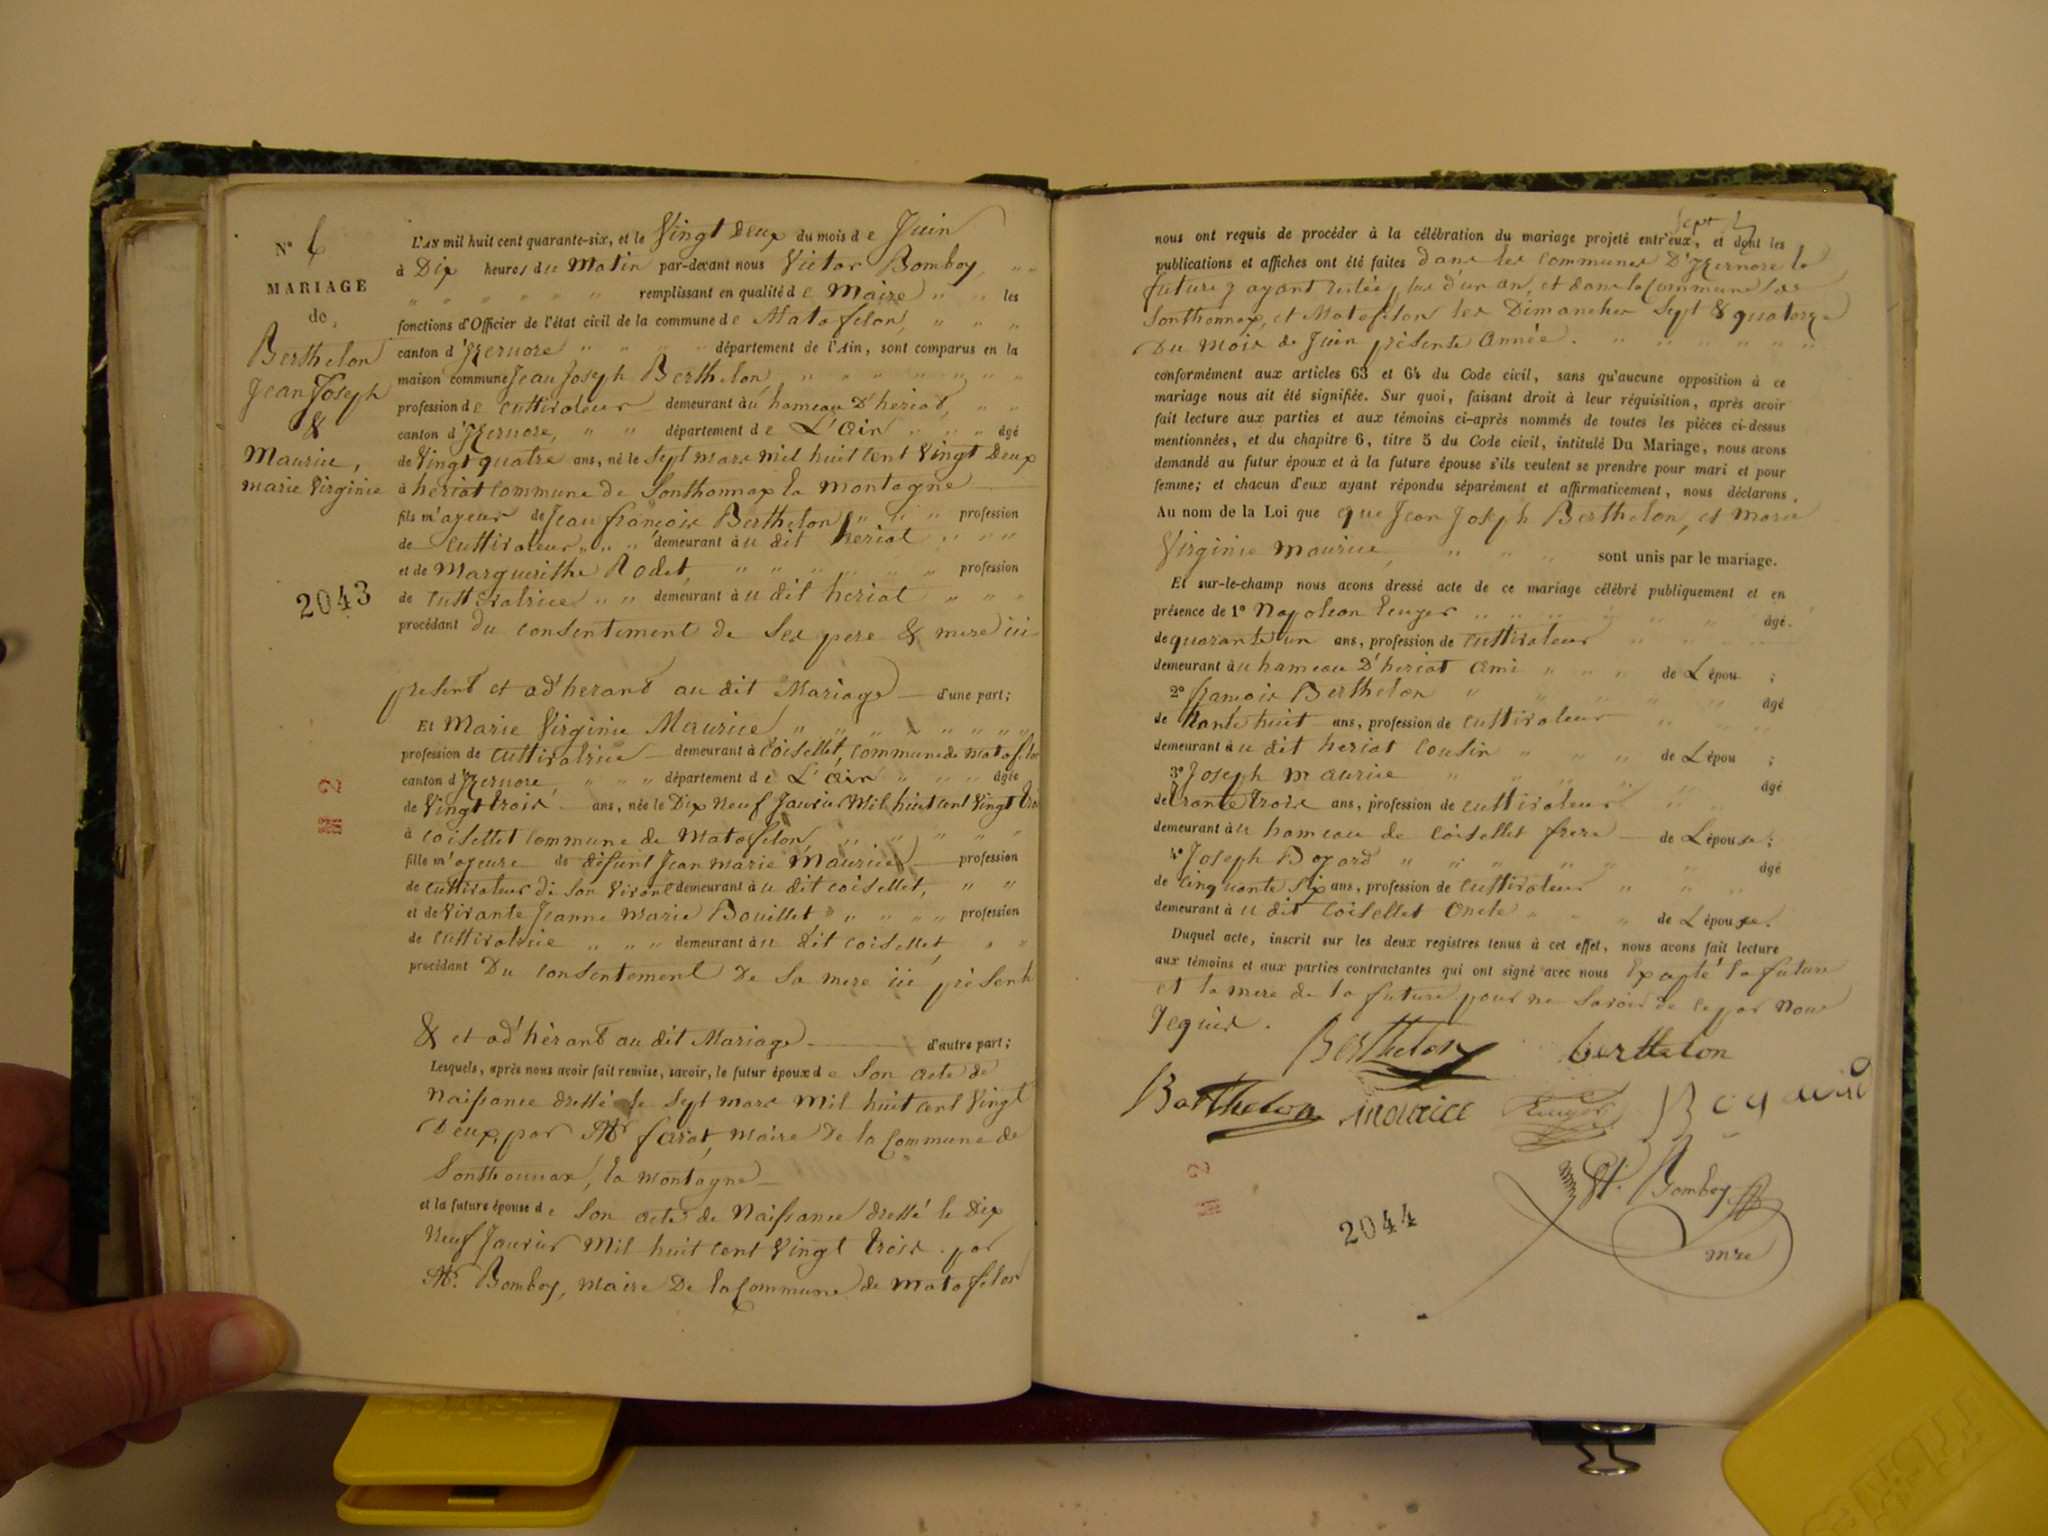 N° 6
MARIAGE
de
Berthelon
Jean Joseph
&
Maurice,
marie Virginie
2043
L'AN mil huit cent quarante-six, et le Vingt Deux du mois de Juin
à Dix heures du Matin par-devant nous Victor Bomboy, " "
" " " " " " remplissant en qualité de Maire " " les
fonctions d'Officier de l'état civil de la commune de Matafelon, " " "
canton d'Izernore " " " " département de l'Ain, sont comparus en la
maison commune Jean Joseph Berthelon, " " " " " " "
profession de cultivateur demeurant àu hameau D'heriat, " "
canton d'Izernore, " " département de L'Ain " " " âgé
de Vingt quatre ans, né le Sept mars mil huit cent Vingt Deux
à heriat commune de Sonthonnax la montagne
fils m'ajeur de Jean françois Berthelon " " " profession
de cultivateur " " " demeurant àu dit heriat " " "
et de Marguerithe Rodet, " " " " " " profession
de cultivatrice " " demeurant àu dit heriat " " "
procédant du consentement de ses pere & mere ici
présent et ad'herant au dit Mariage d'une part;
Et Marie Virginie Maurice " " " " " " " "
profession de cultivatrice demeurant à Coisellet, commune de matafelon
canton d'Izernore, " " " département de L'Ain " " " âgée
de Vingt trois ans, née le Dix Neuf Janvier Mil huit cent Vingt trois
à Coisellet commune de Matafelon " " " " "
fille m'ajeure de défunt Jean marie Maurice profession
de cultivateur de son vivant demeurant àu dit coisellet, " "
et de Vivante Jeanne Marie Bouillet " " " " profession
de cultivatrice " " " demeurant àu dit coisellet, " "
procédant Du consentement De Sa mere ici présent
& et ad'hérant au dit Mariage d'autre part;
Lesquels, après nous avoir fait remise, savoir, le futur époux de Son acte de
Naissance dressé le Sept mars Mil huit cent Vingt
Deux, par Mr maire De la Commune de
Sonthonnax, la montagne
et la future épouse de Son acte de Naissance dressé le Dix
Neuf Janvier Mil huit cent Vingt trois par
Mr. Bomboy, Maire De la Commune de Matafelon
nous ont requis de procéder à la célébration du mariage projeté entr'eux, et dont les
publications et affiches ont été faites dans les communes D'Izernore le
futur y ayant resté plus d'un an, et dans la Commune de
Sonthonnax, et Matafelon les Dimanches Sept & quatorze
Du Mois de Juin présente Année. " " " " " "
conformément aux articles 63 et 64 du Code civil, sans qu'aucune opposition à ce
mariage nous ait été signifiée. Sur quoi, faisant droit à leur réquisition, après avoir
fait lecture aux parties et aux témoins ci-après nommés de toutes les pièces ci-dessus
mentionnées, et du chapitre 6, titre 5 du Code civil, intitulé Du Mariage, nous avons
demandé au futur époux et à la future épouse s'ils veulent se prendre pour mari et pour
femme; et chacun d'eux ayant répondu séparément et affirmativement, nous déclarons,
Au nom de la Loi que que Jean Joseph Berthelon, et Marie
Virginie Maurice, " " " sont unis par le mariage.
Et sur-le-champ nous avons dressé acte de ce mariage célébré publiquement et en
présence de 1° Napoleon " " " " " " âgé
de quarante un ans, profession de cultivateur " " "
demeurant àu hameau D'heriat ami " " " de L'épou ;
2° françois Berthelon " " " " " âgé
de trante huit ans, profession de cultivateur " " "
demeurant àu dit heriat cousin " " " de L'épou ;
3° Joseph Maurice " " " " " âgé
de trante trois ans, profession de cultivateur " "
demeurant àu hameau de Coisellet frere de L'épouse;
4° Joseph Boyard " " " " " " âgé
de Cinquante Six ans, profession de cultivateur " " "
demeurant àu dit Coisellet Oncle " " " de L'épouse.
Duquel acte, inscrit sur les deux registres tenus à cet effet, nous avons fait lecture
aux témoins et aux parties contractantes qui ont signé avec nous Exapté la future
et la mere de la future pour ne savoir de ce par Nous
requis.
Berthelon berthelon
Barthelon maurice Boyard
Vt. Bomboy
mre
2044